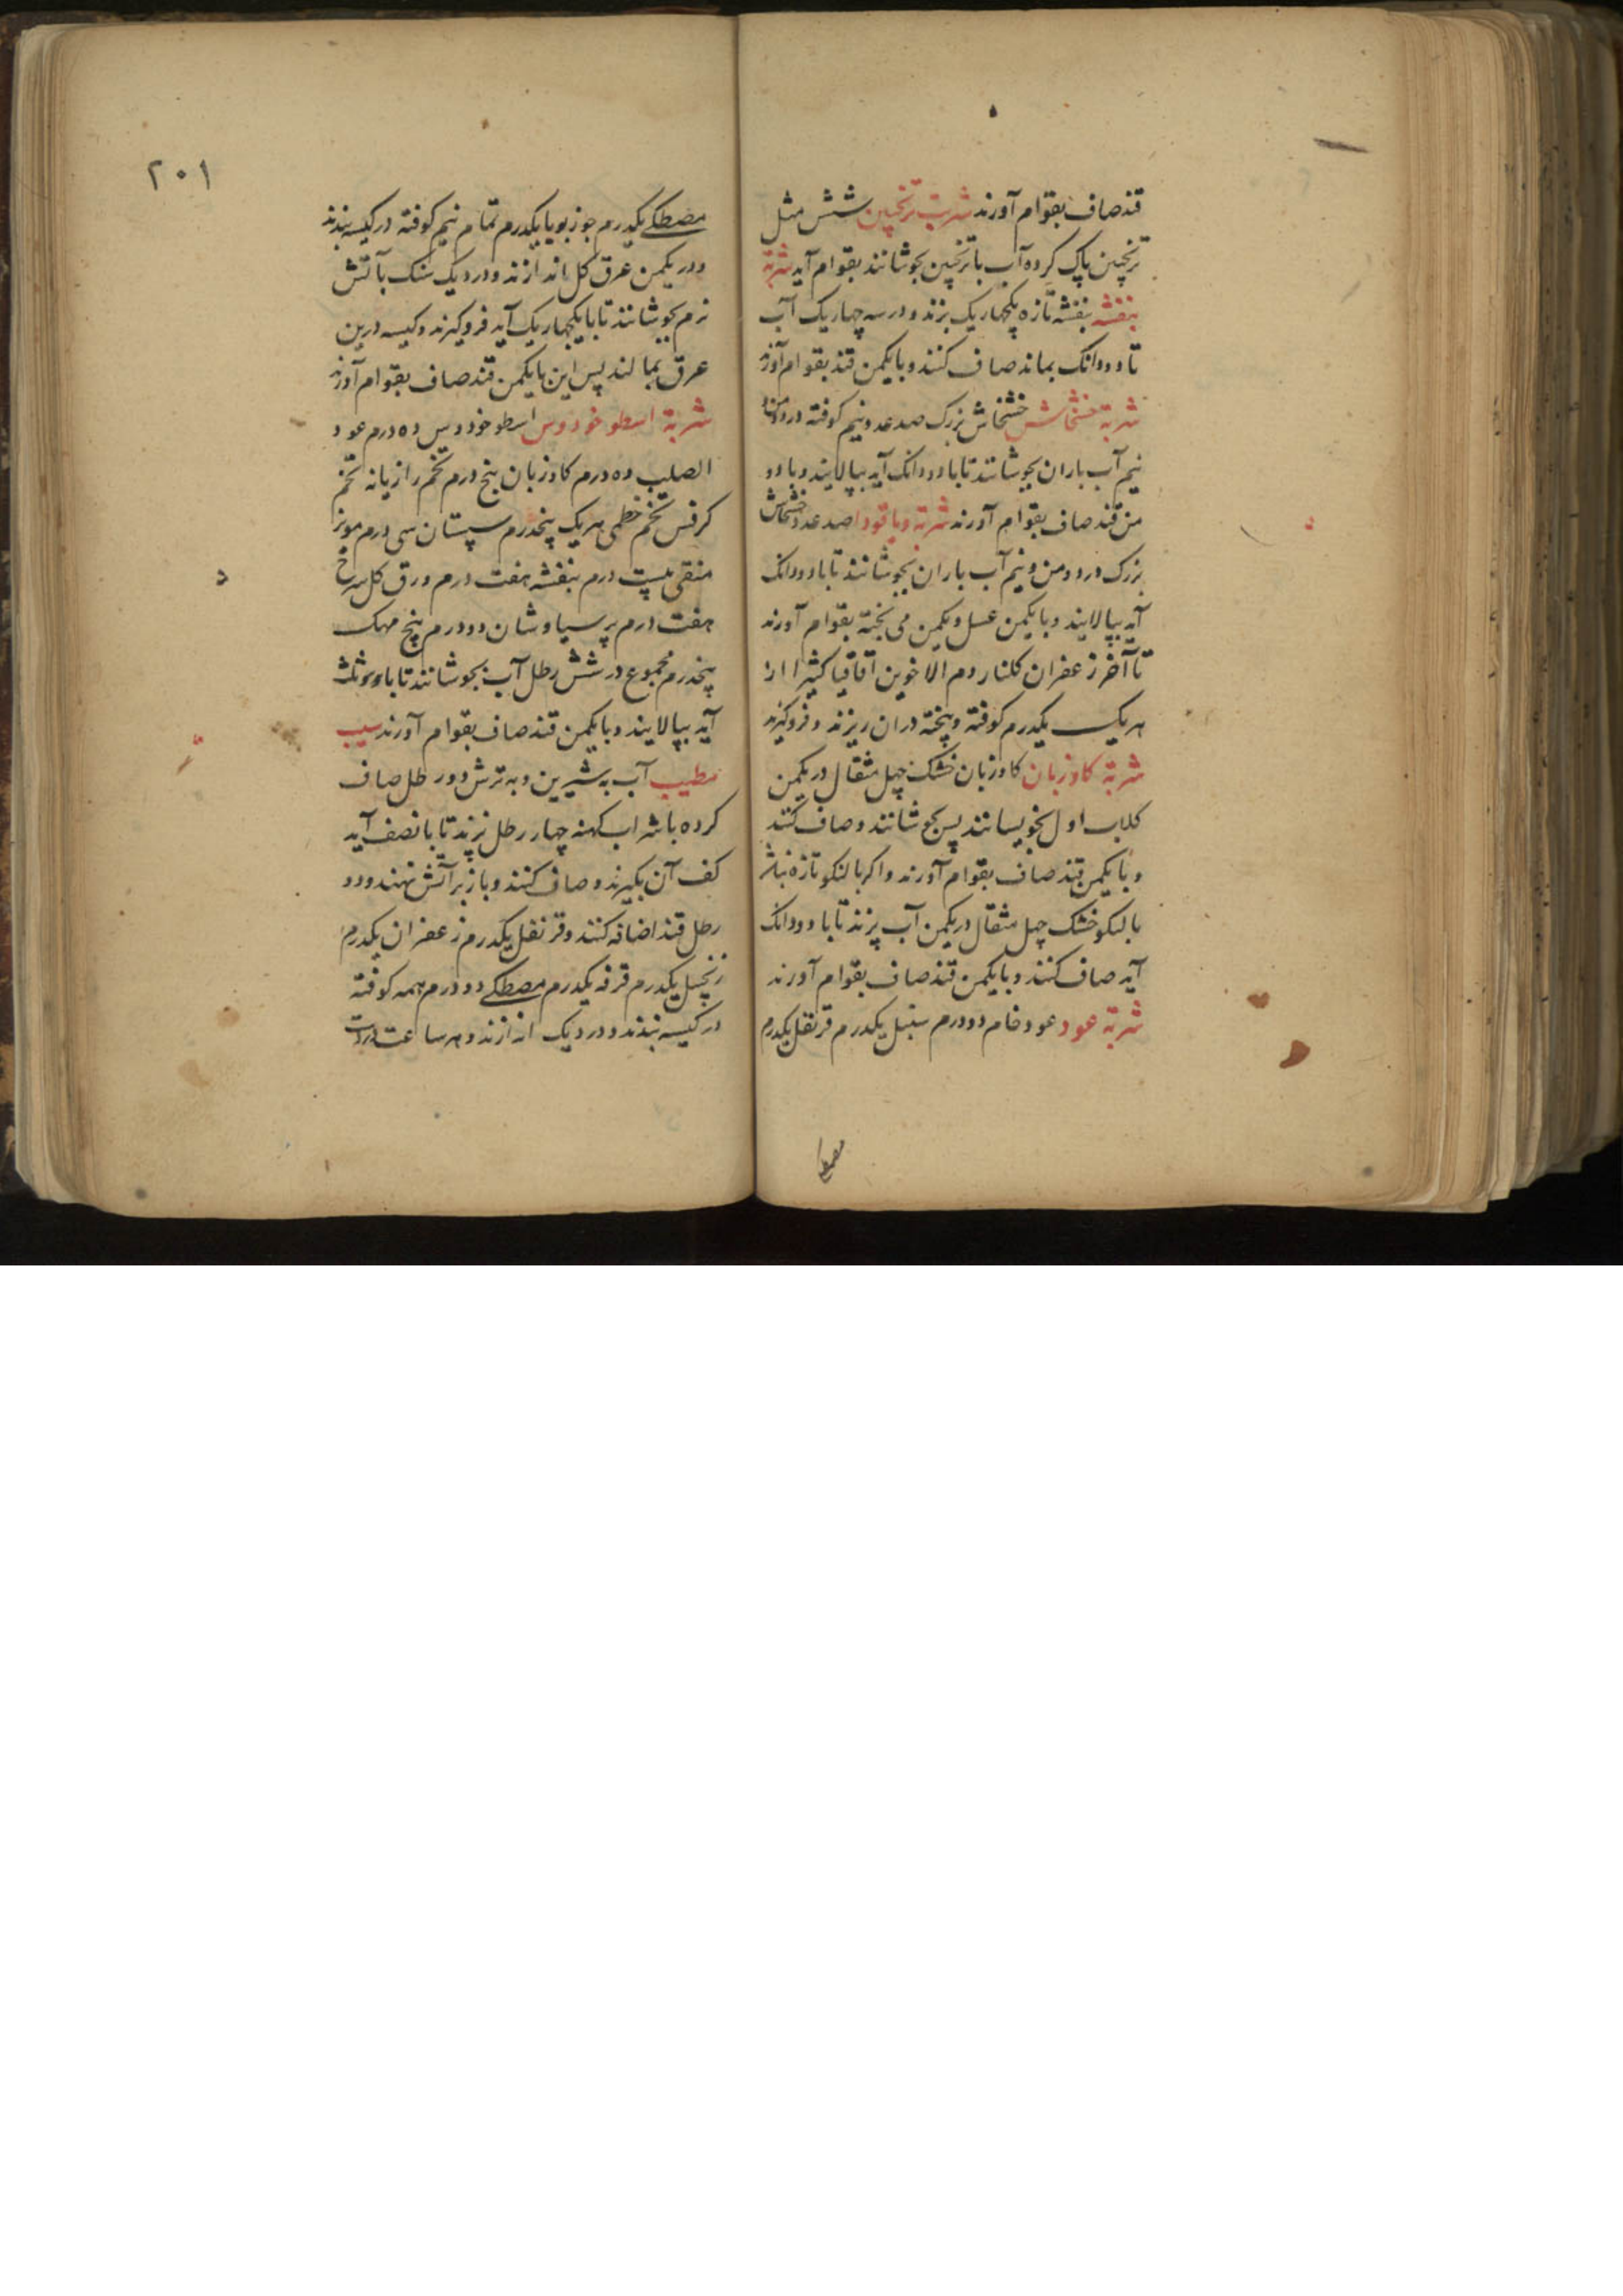 قند صاف بقوام آورند شربت ترنجبین شش مثل
ترنجبین پاک کرده آب با ترنجبین بجوشانند بقوام آید شربة
بنفشه بنفشه تازه یکچهاریک بزند و در سه چهاریک آب
تا دو دانک بماند صاف کنند و با یکمن قند بقوام آورند
شربة خشخاش خشخاش بزرک صد عدد نیم کوفته در دو من و
نیم آب باران بجوشانند تا با دو دانک آید بپالایند و با دو
من قند صاف بقوام آورند شربة دیاقودا صد عدد خشخاش
بزرک در دو من و نیم آب باران بجوشانند تا با دو دانک
آید بپالایند و با یکمن عسل و یکمن می پخته بقوام آورند
تا آخر زعفران کلنار دم الاخوین آقاقیا کثیرا از
هر یک یکدرم کوفته و پخته دران ریزند و فروکیرند
شربة کاوزبان کاوزبان خشک چهل مثقال در یکمن
کلاب اول بخویسانند پس بجوشانند و صاف کنند
و با یکمن قند صاف بقوام آورند و اکر بالنکو تازه نباشد
بالنکو خشک چهل مثقال در یکمن آب پزند تا با دو دانک
آید صاف کنند و با یکمن قند صاف بقوام آورند
شربة عود عود خام دو درم سنبل یکدرم قرنفل یکدرم
مصطکی
۲۰۱
مصطکی یکدرم جوزبویا یکدرم تمام نیم کوفته در کیسه بندند
و در یکمن عرق کل اندازند و در دیک سنک بآتش
نرم بجوشانند تا با یکچهاریک آید فروکیرند و کیسه درین
عرق بمالند پس این با یکمن قند صاف بقوام آورند
شربة اسطوخودوس اسطوخودوس ده درم عود
الصلیب ده درم کاوزبان پنج درم تخم رازیانه تخم
کرفس تخم خطمی هر یک پنجدرم سپستان سی درم مویز
منقی بیست درم بنفشه هفت درم ورق کل سرخ
هفت درم پرسیاوشان دو درم بیخ مهک
پنجدرم مجموع در شش رطل آب بجوشانند تا با دو ثلث
آید بپالایند و با یکمن قند صاف بقوام آورند سیب
مطیب آب به شیرین و به ترش دو رطل صاف
کرده با شراب کهنه چهار رطل بزند تا با نصف آید
کف آن بکیرند و صاف کنند و باز برآتش نهند و دو
رطل قند اضافه کنند و قرنفل یکدرم زعفران یکدرم
زنجبیل یکدرم قرفه یکدرم مصطکی دو درم همه کوفته
در کیسه بندند و در دیک اندازند و هر ساعت